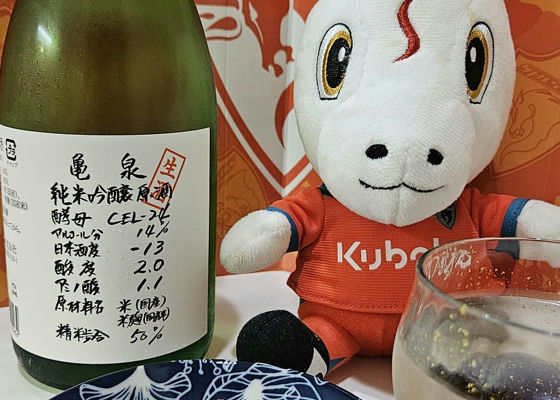 亀泉
生酒
純米吟醸原酒
酵母 CEL-24
アルコール分 14%
日本酒度 -13
酸度 2.0
アミノ酸 1.1
原材料名 米(国産)
米麹(国産米)
精米歩合 50%
Kubota